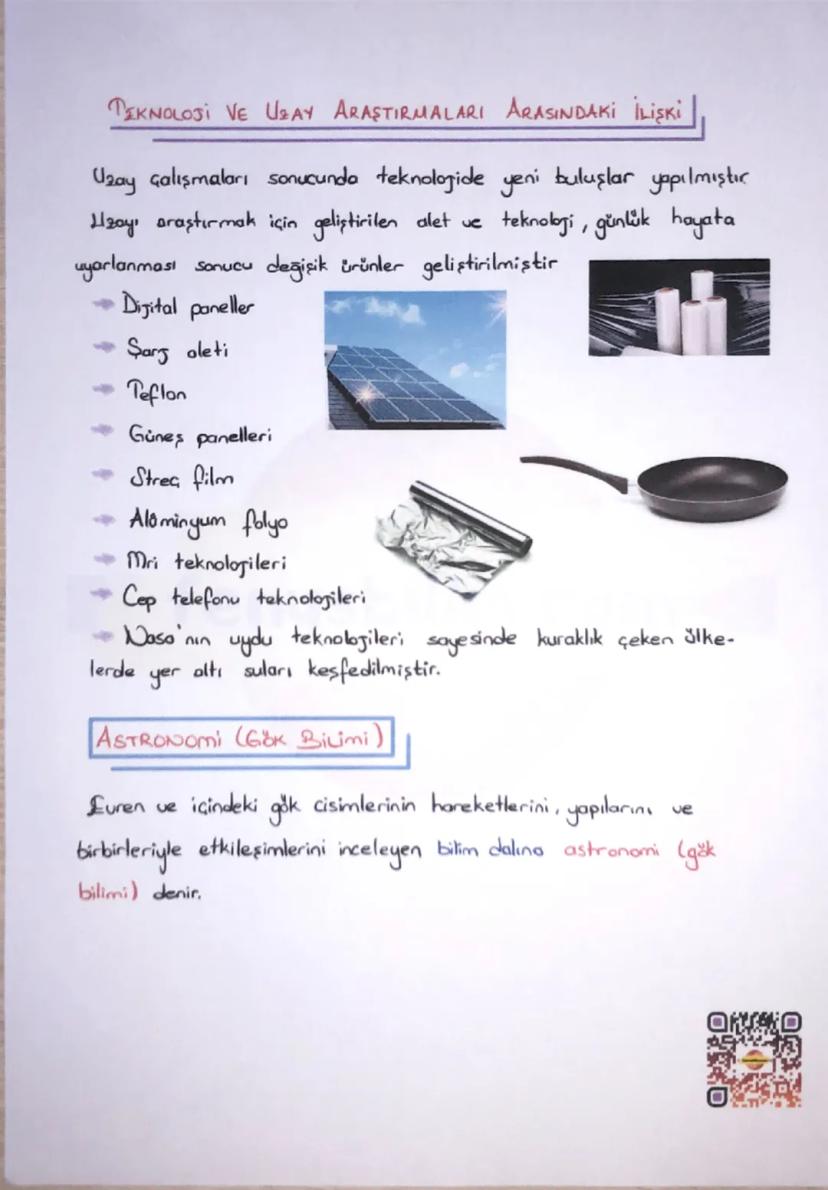 TEKNOLOJİ VE UZAY ARAŞTIRMALARI ARASINDAKİ İLİŞKİ
Uzay çalışmaları sonucunda teknolojide yeni buluşlar yapılmıştır.
Uzayı araştırmak için geliştirilen alet ve teknoloji, günlük hayata
uyarlanması sonucu değişik ürünler geliştirilmiştir
Dijital paneller
Şarj aleti
Teflon
Güneş panelleri
Streç film
Alüminyum folyo
Mri teknolojileri
Cep telefonu teknolojileri
Nasa'nın uydu teknolojileri sayesinde kuraklık çeken ülke-
lerde yer altı suları keşfedilmiştir.
ASTRONOMİ (GÖK BİLİMİ)
Evren ve içindeki gök cisimlerinin hareketlerini, yapılarını ve
birbirleriyle etkileşimlerini inceleyen bilim dalına astronomi (gök
bilimi) denir.